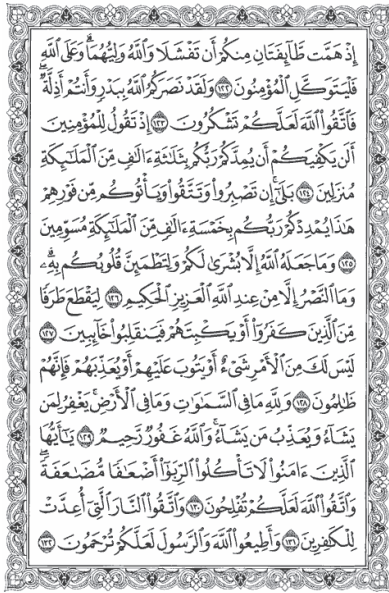 إِذْ هَمَّت طَّآئِفَتَانِ مِنكُمْ أَن تَفْشَلَا وَٱللَّهُ وَلِيُّهُمَا ۗ وَعَلَى ٱللَّهِ
فَلْيَتَوَكَّلِ ٱلْمُؤْمِنُونَ ١٢٢ وَلَقَدْ نَصَرَكُمُ ٱللَّهُ بِبَدْرٍ وَأَنتُمْ أَذِلَّةٌ ۖ
فَٱتَّقُوا۟ ٱللَّهَ لَعَلَّكُمْ تَشْكُرُونَ ١٢٣ إِذْ تَقُولُ لِلْمُؤْمِنِينَ
أَلَن يَكْفِيَكُمْ أَن يُمِدَّكُمْ رَبُّكُم بِثَلَـٰثَةِ ءَالَـٰفٍ مِّنَ ٱلْمَلَـٰٓئِكَةِ
مُنزَلِينَ ١٢٤ بَلَىٰٓ ۚ إِن تَصْبِرُوا۟ وَتَتَّقُوا۟ وَيَأْتُوكُم مِّن فَوْرِهِمْ
هَـٰذَا يُمْدِدْكُمْ رَبُّكُم بِخَمْسَةِ ءَالَـٰفٍ مِّنَ ٱلْمَلَـٰٓئِكَةِ مُسَوِّمِينَ
١٢٥ وَمَا جَعَلَهُ ٱللَّهُ إِلَّا بُشْرَىٰ لَكُمْ وَلِتَطْمَئِنَّ قُلُوبُكُم بِهِۦ ۗ
وَمَا ٱلنَّصْرُ إِلَّا مِنْ عِندِ ٱللَّهِ ٱلْعَزِيزِ ٱلْحَكِيمِ ١٢٦ لِيَقْطَعَ طَرَفًا
مِّنَ ٱلَّذِينَ كَفَرُوٓا۟ أَوْ يَكْبِتَهُمْ فَيَنقَلِبُوا۟ خَآئِبِينَ ١٢٧
لَيْسَ لَكَ مِنَ ٱلْأَمْرِ شَىْءٌ أَوْ يَتُوبَ عَلَيْهِمْ أَوْ يُعَذِّبَهُمْ فَإِنَّهُمْ
ظَـٰلِمُونَ ١٢٨ وَلِلَّهِ مَا فِى ٱلسَّمَـٰوَٰتِ وَمَا فِى ٱلْأَرْضِ ۚ يَغْفِرُ لِمَن
يَشَآءُ وَيُعَذِّبُ مَن يَشَآءُ ۚ وَٱللَّهُ غَفُورٌ رَّحِيمٌ ١٢٩ يَـٰٓأَيُّهَا
ٱلَّذِينَ ءَامَنُوا۟ لَا تَأْكُلُوا۟ ٱلرِّبَوٰٓا۟ أَضْعَـٰفًا مُّضَـٰعَفَةً ۖ
وَٱتَّقُوا۟ ٱللَّهَ لَعَلَّكُمْ تُفْلِحُونَ ١٣٠ وَٱتَّقُوا۟ ٱلنَّارَ ٱلَّتِىٓ أُعِدَّتْ
لِلْكَـٰفِرِينَ ١٣١ وَأَطِيعُوا۟ ٱللَّهَ وَٱلرَّسُولَ لَعَلَّكُمْ تُرْحَمُونَ ١٣٢